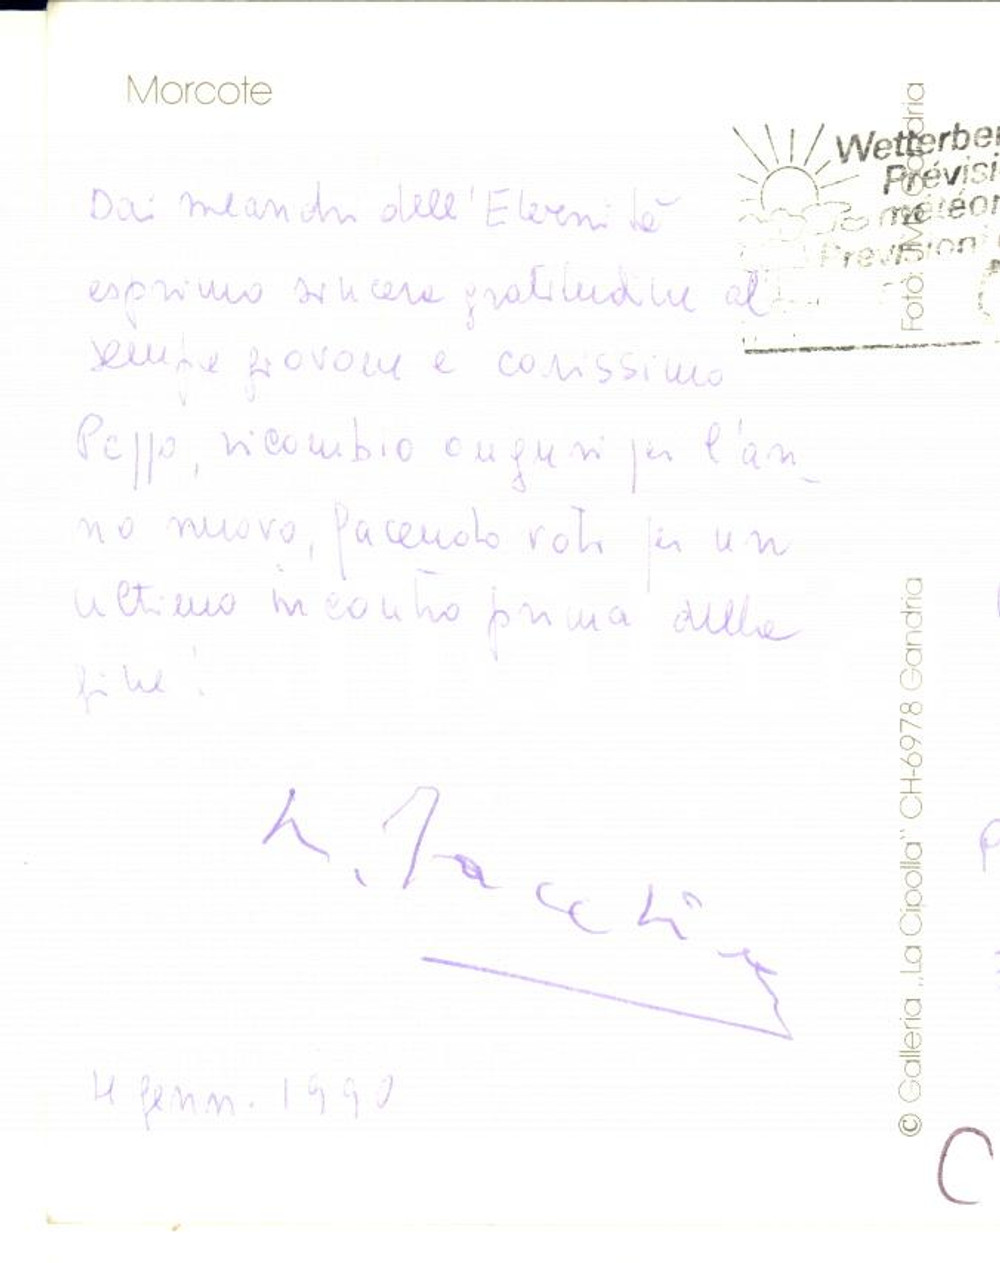 Morcote
Dai meandri dell'Eternità
esprimo sincera gratitudine al
sempre giovane e carissimo
Peppo, ricambio auguri per l'an_
no nuovo, facendo voti per un
ultimo incontro prima della
fine!
4 genn. 1990
Wetterber
Prévisi
météor
Previsioni
© Galleria „La Cipolla" CH-6978 Gandria